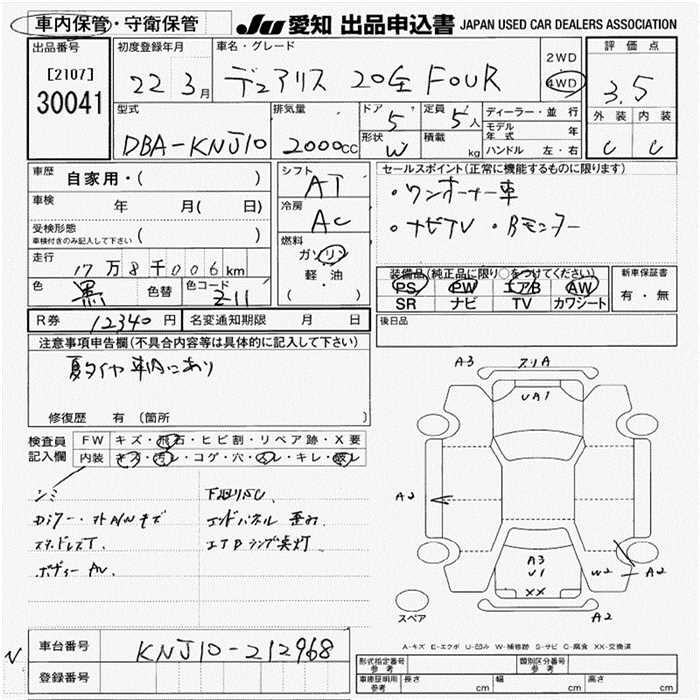 車内保管・守衛保管
JU 愛知 出品申込書 JAPAN USED CAR DEALERS ASSOCIATION
出品番号
[2107]
30041
初度登録年月
22年3月
車名・グレード
デュアリス 20G FOUR
2WD
4WD
評価点
3.5
外装 内装
C C
型式
DBA-KNJ10
排気量
2000cc
ドア 5
形状 W
定員 5人
積載 kg
ディーラー・並行
モデル年式 年
ハンドル 左・右
車歴 自家用・( )
車検 年 月( 日)
受検形態
車検付きのみ記入して下さい ( )
走行
17万8千006km
色 黒 色替 色コード Z11
シフト
AT
冷房
AC
燃料
ガソリン
軽・油
( ・ )
セールスポイント(正常に機能するものに限ります)
・ワンオーナー車
・ナビTV ・Bモニター
装備品(純正品に限り○をつけてください)
PS PW エアB AW
SR ナビ TV カワシート
新車保証書
有・無
R券 12340円 名変通知期限 月 日
後日品
注意事項申告欄(不具合内容等は具体的に記入して下さい)
夏タイヤ車内にあり
修復歴 有(箇所
検査員
記入欄
FW キズ・飛石・ヒビ割・リペア跡・X要
内装 キズ・汚レ・コゲ・穴・スレ・キレ・破レ
シミ
スタッドレスT.
ボディーAU.
エンドパネル 歪み
A3
スリA
UA1
A3
A3
U1
XX
W2
A2
A2
スペア
A-キズ E-エクボ U-凹み W-補修跡 S-サビ C-腐食 XX-交換済
車台番号 KNJ10-212968
登録番号
N
形式指定番号
参考
類別区分番号
参考
車庫証明用
参考
長さ cm 幅 cm 高さ cm